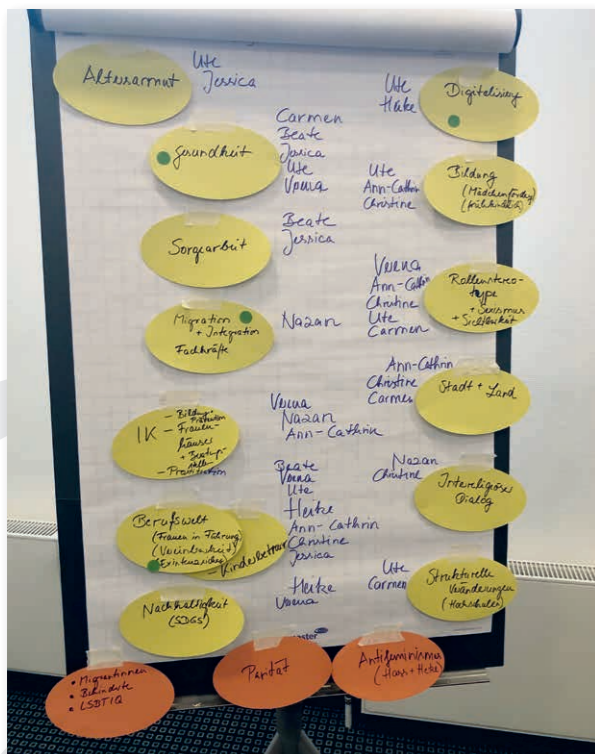 Altersarmut
Ute
Jessica
Gesundheit
Carmen
Beate
Jessica
Ute
Verena
Sorgearbeit
Beate
Jessica
Migration
+ Integration
Fachkräfte
Nazan
IK
- Bildung
Prävention
- Frauen-
häuser
+ Beratungs-
stellen
- Prostitution
Verena
Nazan
Ann-Cathrin
Berufswelt
(Frauen in Führung)
(Vereinbarkeit)
- Kinderbetreuung
Beate
Verena
Ute
Heike
Ann-Cathrin
Christine
Jessica
Nachhaltigkeit
(SDGs)
Heike
Verena
Ute
Heike
Digitalisierung
Ute
Ann-Cathrin
Christine
Bildung
(Mädchenförder.)
(frühkindlich)
Verena
Ann-Cathrin
Christine
Ute
Carmen
Rollenstereo-
type
+ Sexismus
+ Sichtbarkeit
Ann-Cathrin
Christine
Carmen
Stadt + Land
Nazan
Christine
Interreligiöser
Dialog
Ute
Carmen
Strukturelle
Veränderungen
(Hochschulen)
• Migrantinnen
• Behinderte
• LSBTIQ
Parität
Antifeminismus
(Hass + Hetze)